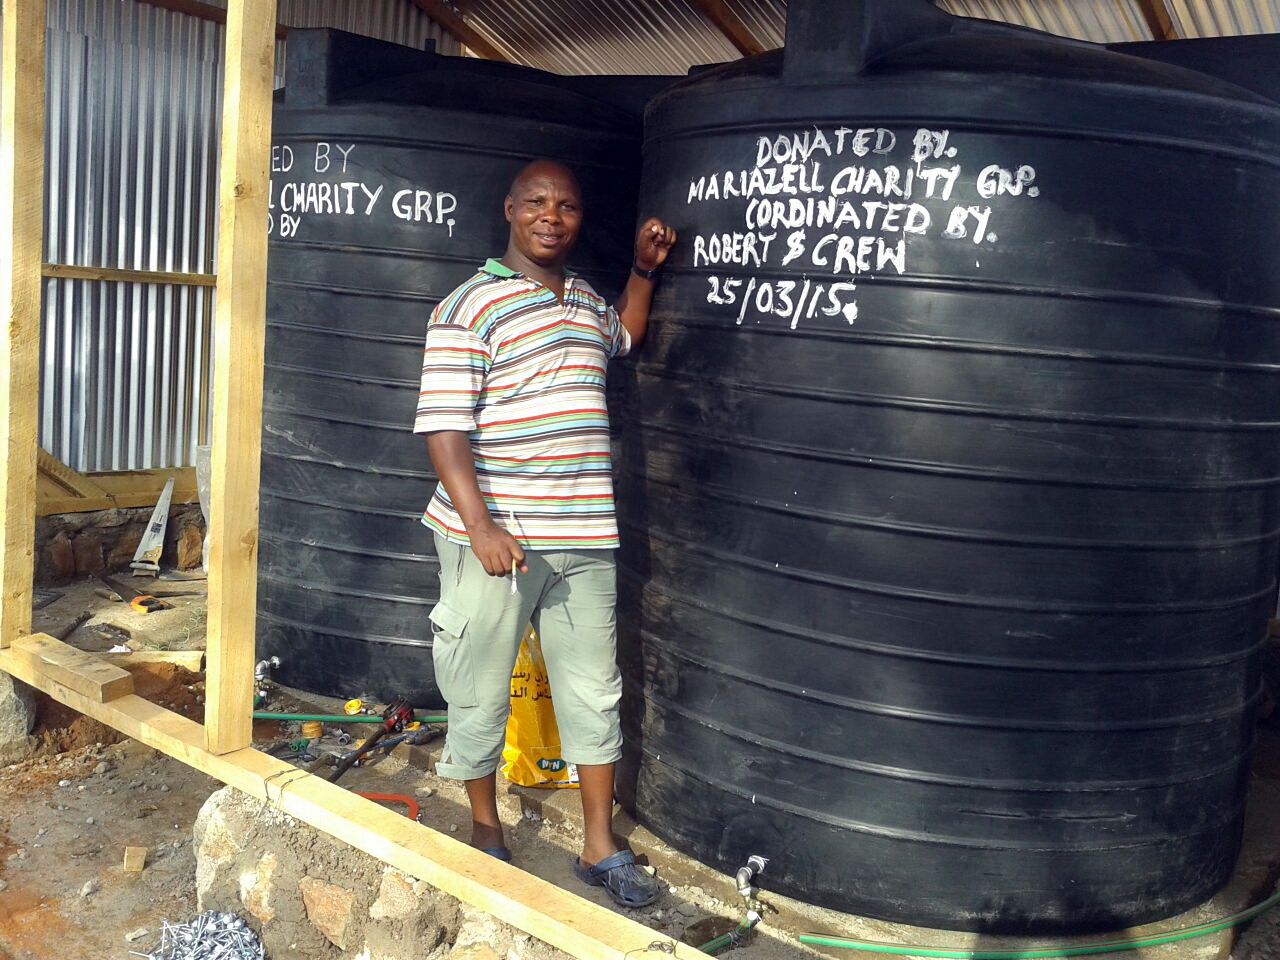 ED BY
L CHARITY GRP.
D BY
DONATED BY.
MARIAZELL CHARITY GRP.
CORDINATED BY.
ROBERT $ CREW
25/03/15.
MTN